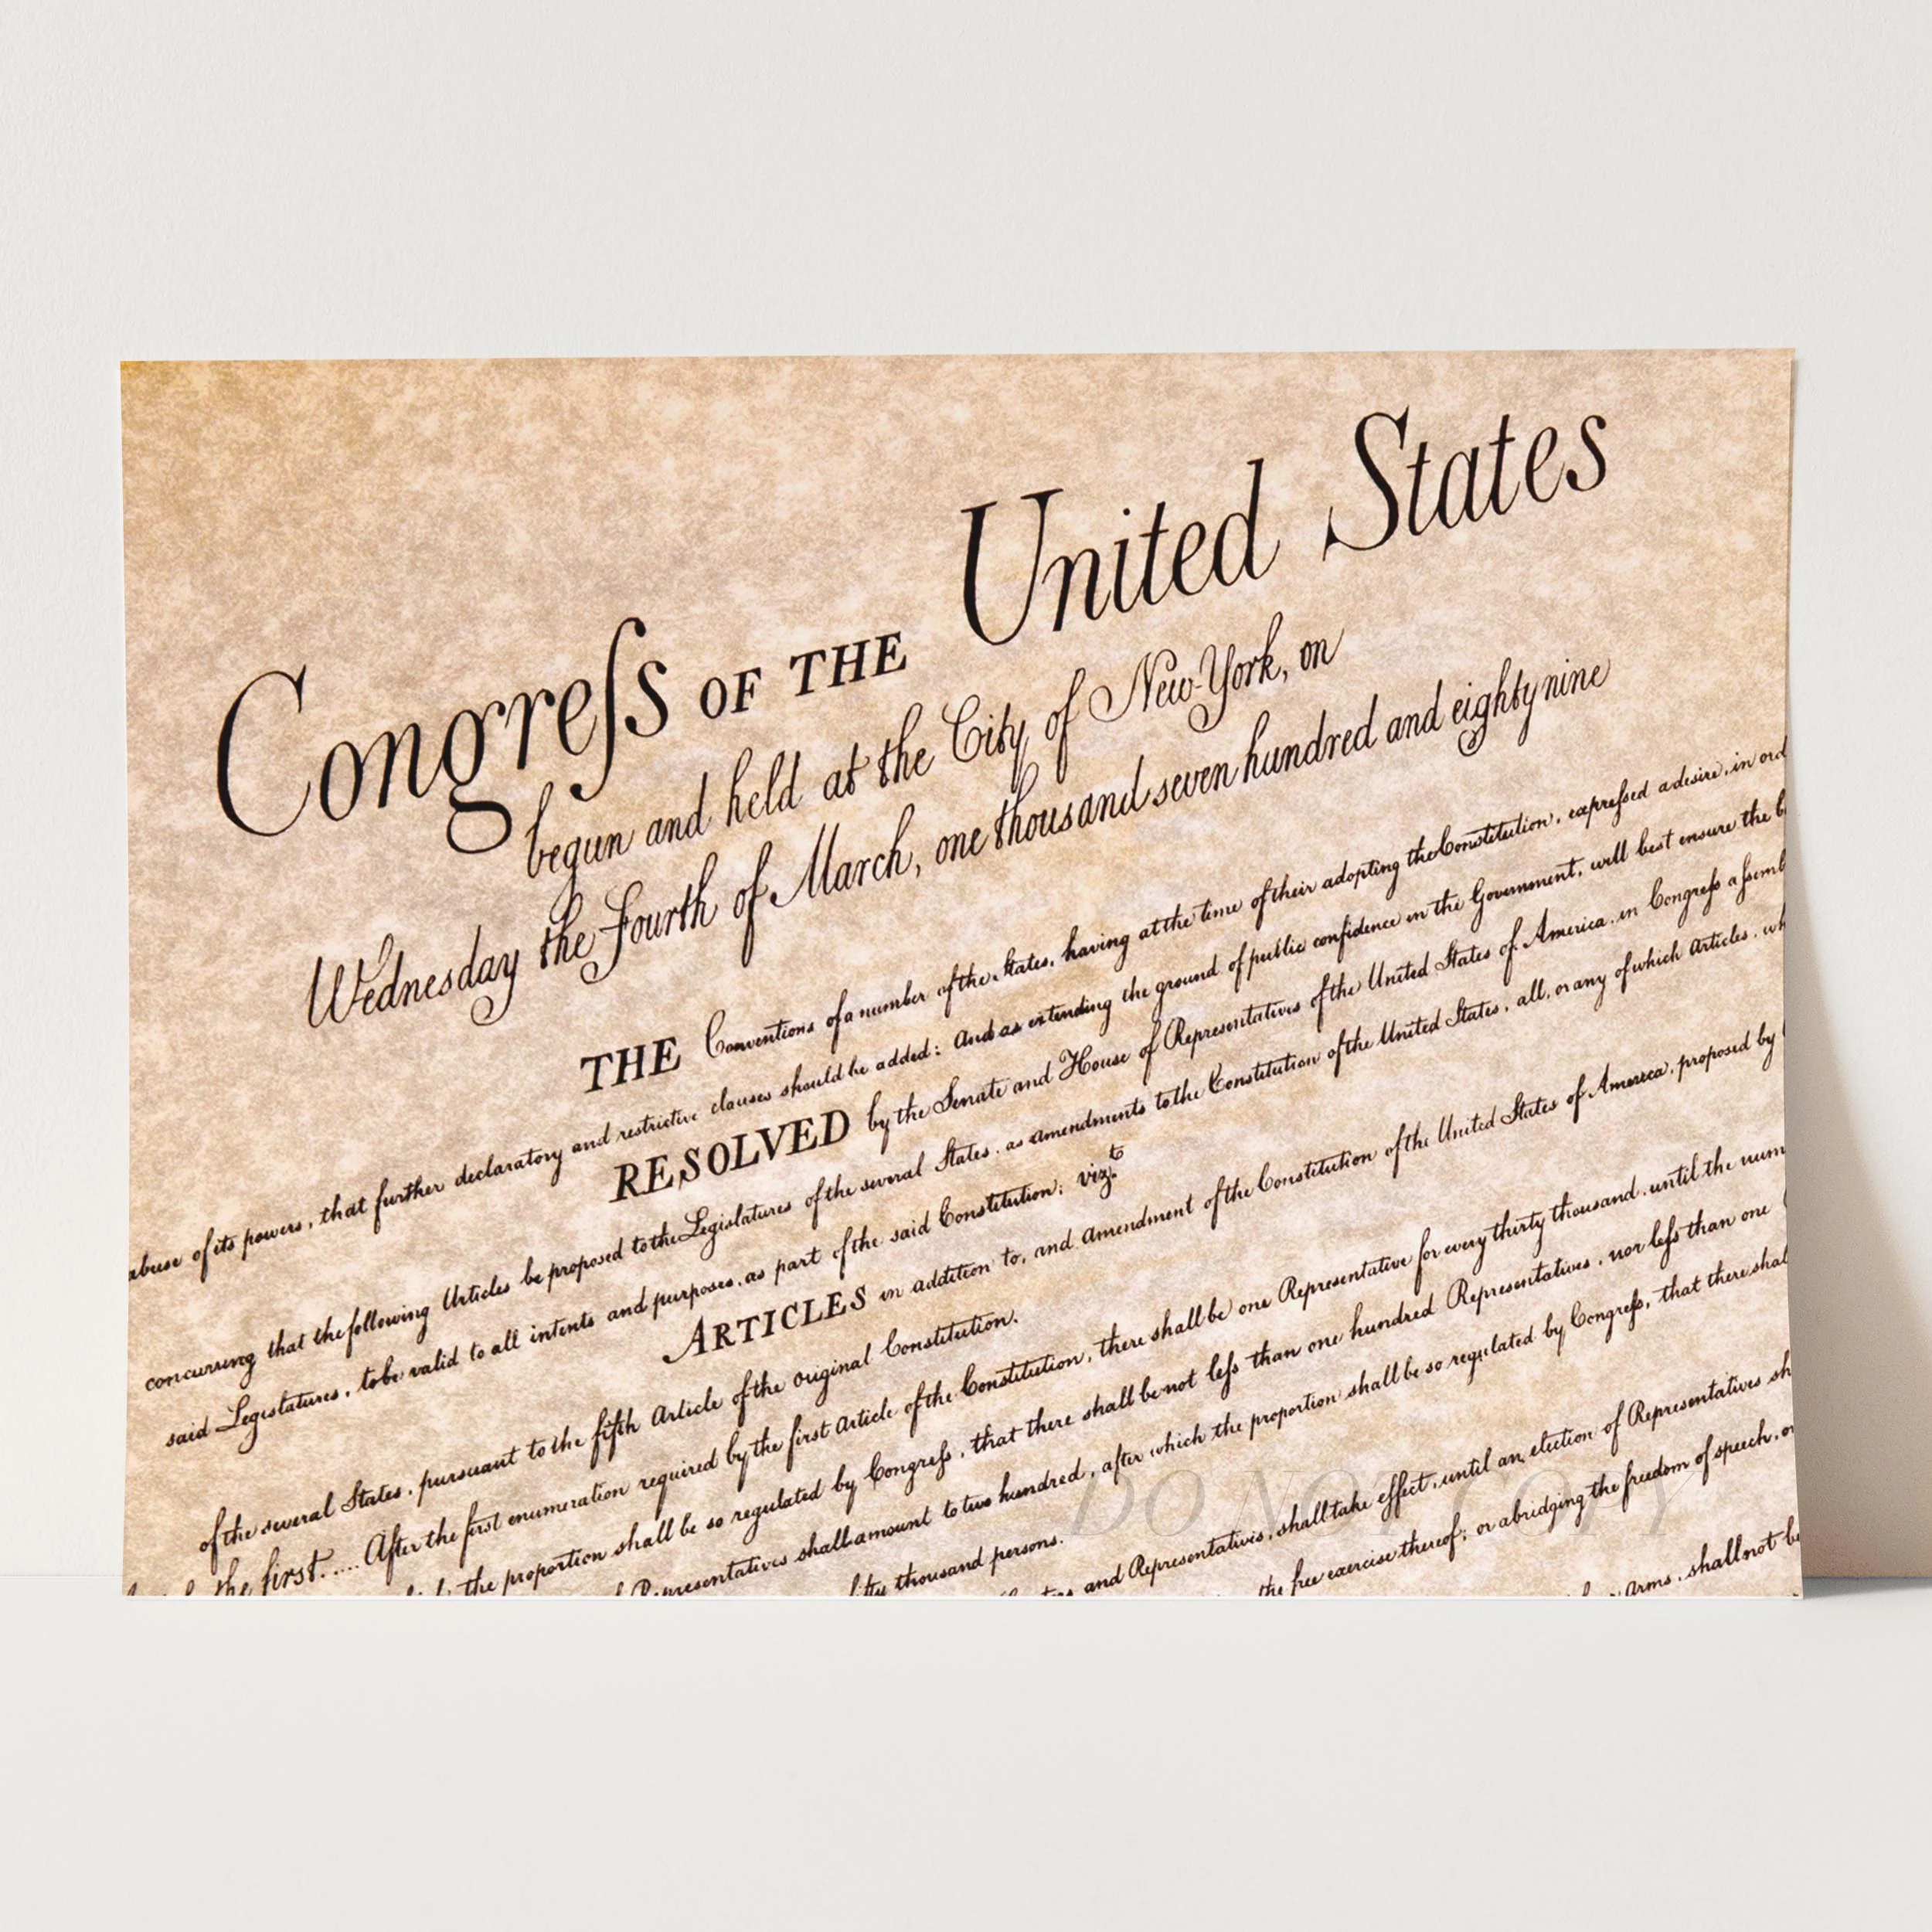 Congreſs OF THE United States
begun and held at the City of New-York, on
Wednesday the Fourth of March, one thousand seven hundred and eighty nine
THE Conventions of a number of the States, having at the time of their adopting the Constitution, expreſsed a desire, in ord
abuse of its powers, that further declaratory and restrictive clauses should be added: And as extending the ground of public confidence in the Government, will best ensure the b
RESOLVED by the Senate and House of Representatives of the United States of America, in Congreſs aſsemb
concurring that the following Articles be proposed to the Legislatures of the several States, as amendments to the Constitution of the United States, all, or any of which Articles, wh
said Legislatures, to be valid to all intents and purposes, as part of the said Constitution; vizt.
ARTICLES in addition to, and amendment of the Constitution of the United States of America, proposed by
of the several States, pursuant to the fifth Article of the original Constitution.
the first..... After the first enumeration required by the first Article of the Constitution, there shall be one Representative for every thirty thousand, until the num
the proportion shall be so regulated by Congreſs, that there shall be not leſs than one hundred Representatives, nor leſs than one
Representatives shall amount to two hundred, after which the proportion shall be so regulated by Congreſs, that there shal
fifty thousand persons.
and Representatives, shall take effect, until an election of Representatives sh
the free exercise thereof; or abridging the freedom of speech, or
Arms, shall not be
DO NOT COPY